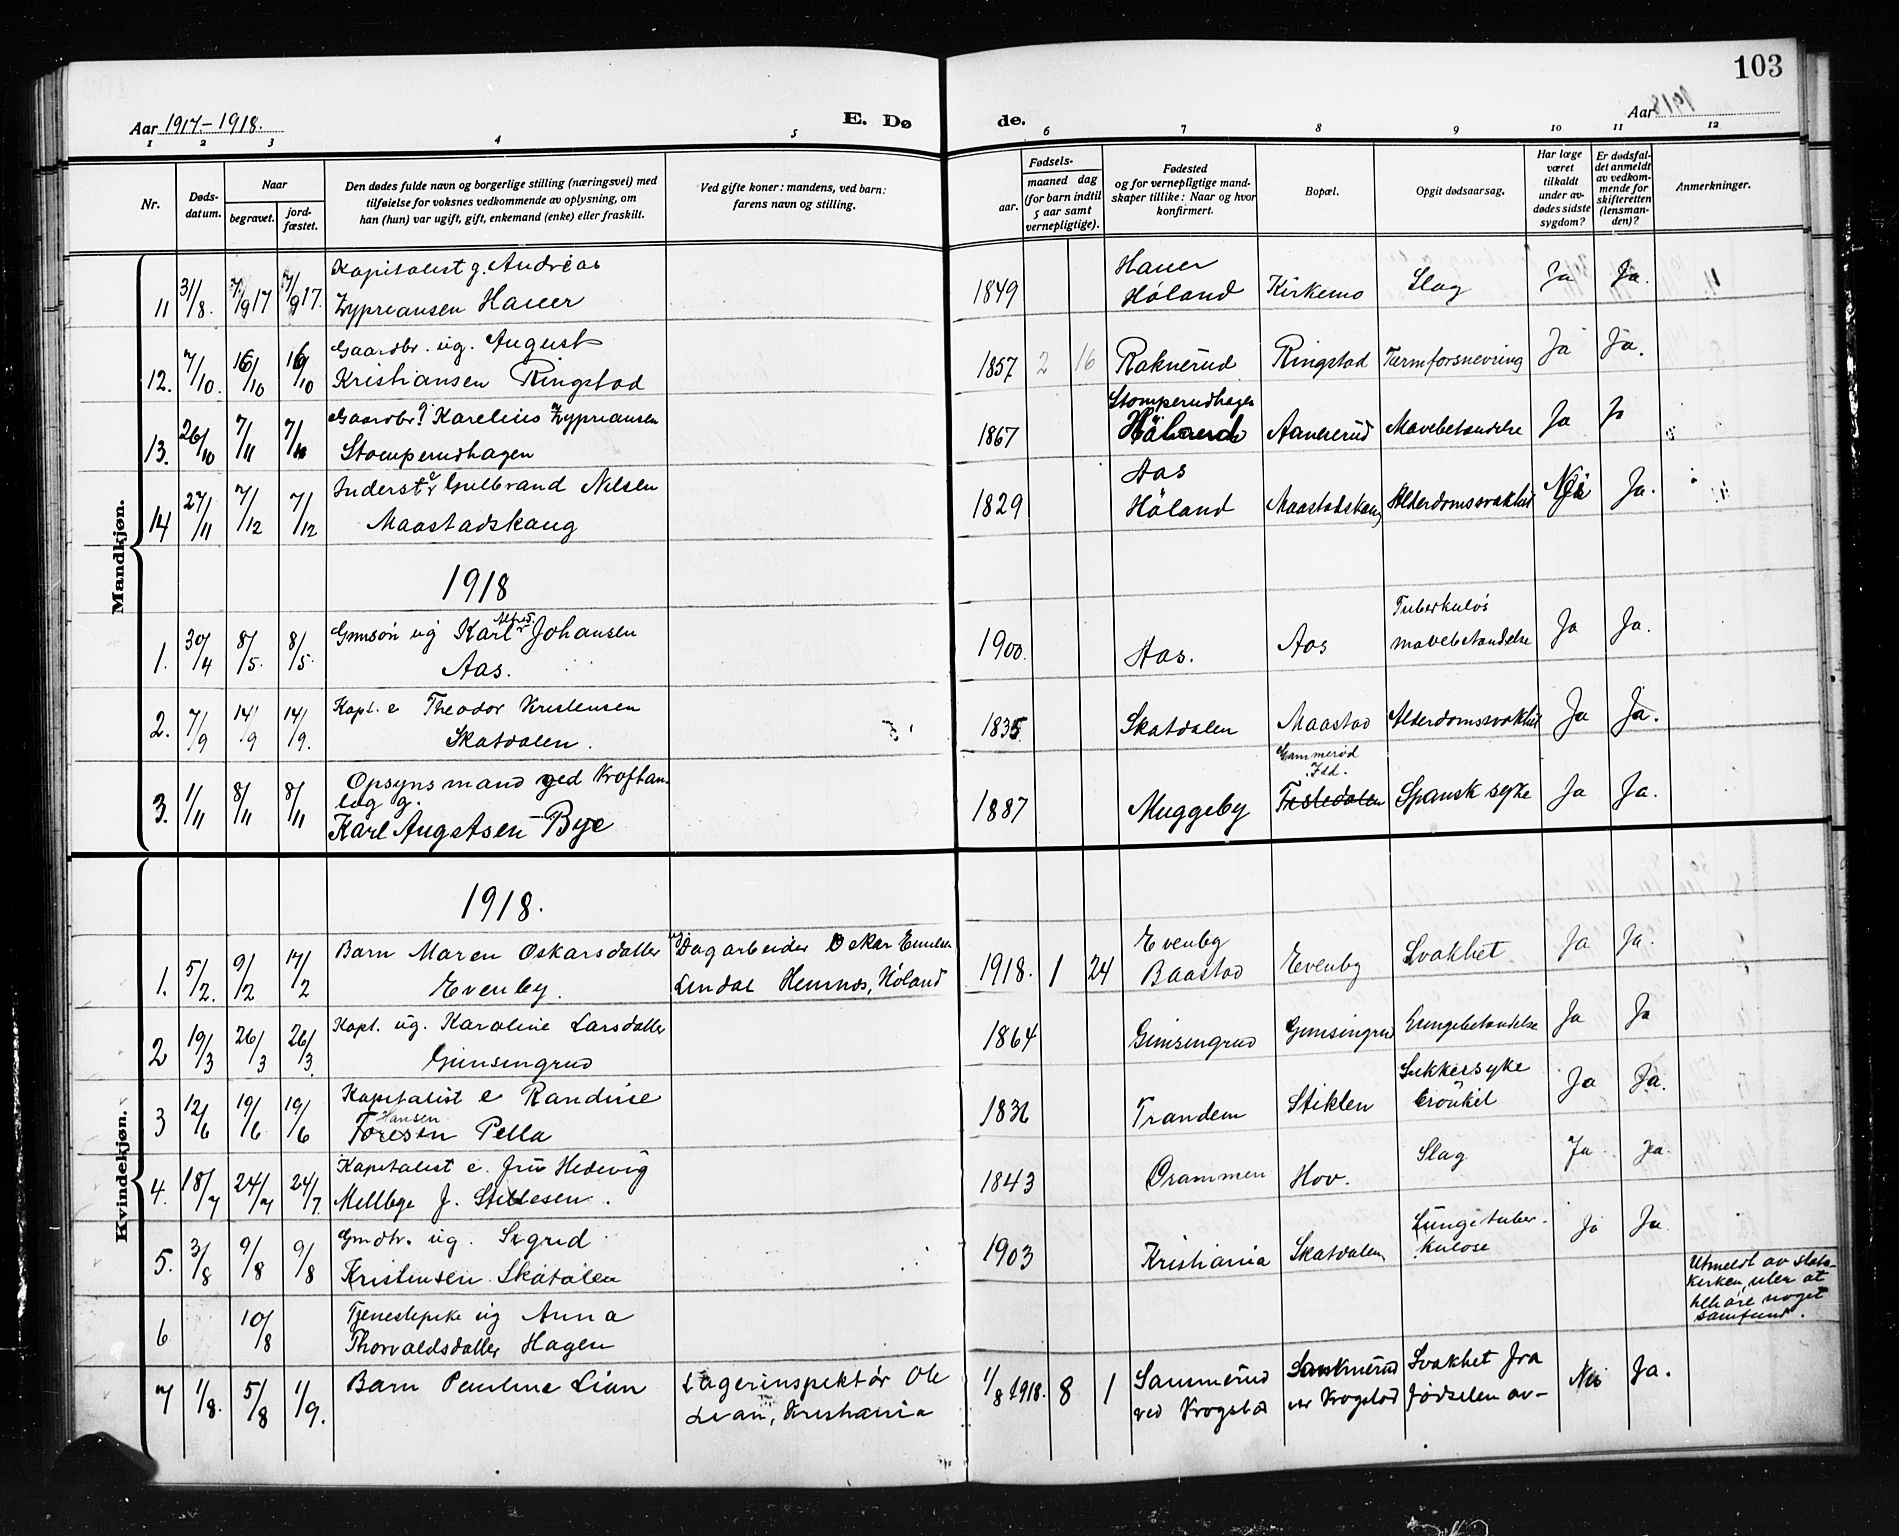 103
Aar 1917-1918.
E. Dø
de.
Aar 1918
1 2 3 4 5 6 7 8 9 10 11 12
Nr.
Døds-
datum.
Naar
begravet.
jord-
fæstet.
Den dødes fulde navn og borgerlige stilling (næringsvei) med
tilføielse for voksnes vedkommende av oplysning, om
han (hun) var ugift, gift, enkemand (enke) eller fraskilt.
Ved gifte koner: mandens, ved barn:
farens navn og stilling.
Fødsels-
aar.
maaned dag
(for barn indtil
5 aar samt
vernepligtige).
Fødested
og for vernepligtige mand-
skaper tillike: Naar og hvor
konfirmert.
Bopæl.
Opgit dødsaarsag.
Har læge
været
tilkaldt
under av-
dødes sidste
sygdom?
Er dødsfal-
det anmeldt
av vedkom-
mende for
skifteretten
(lensman-
den)?
Anmerkninger.
Mandkjøn.
11 31/8. 7/9 17 7/9 17. Kapitalist g. Andreas
Zypriansen Hauer
1849 Hauer
Høland Kirkemo Slag Ja Ja.
12. 7/10. 16/10 16/10 Gaardbr. ug. August
Kristiansen Ringstad
1857 2 16 Raknerud Ringstad Tarmforsnevring Ja Ja.
13. 26/10 7/11 7/11 Gaardbr. g. Karelius Zypriansen
Stomperudhagen
1867 Stomperudhagen
Høland Aamerud Mavebetændelse Ja Ja
14 27/11 7/12 7/12 Inderst e Gulbrand Nilsen
Maastadskaug
1829 Aas
Høland Maastadskaug Alderdomssvakhet Nei Ja.
1918
1. 30/4 8/5. 8/5. Gmsøn ug Karl Alfred Johansen
Aas.
1900. Aas. Aas Tuberkuløs
mavebetændelse Ja Ja.
2. 7/9 14/9 14/9. Kapt. e Theodor Kristensen
Skatdalen.
1835 Skatdalen Maastad Alderdomssvakhet Ja Ja.
3. 1/11 8/11 8/11 Opsynsmand ved Kraftan-
læg g.
Karl Augstsen Bye
1887 Muggeby Gammerød
Idd.
Tistedalen Spansk syke Ja Ja.
Kvindekjøn.
1918.
1. 5/2. 9/2 17/2 Barn Maren Oskarsdatter
Evenby.
ug Dagarbeider Oskar Emilsen
Lindal Hemnes, Høland
1918. 1 24 Evenby
Baastad Evenby Svakhet Ja Ja.
2 19/3 26/3 26/3. Kapt. ug. Karoline Larsdatter
Gimsingrud
1864 Gimsingrud Gimsingrud Lungebetændelse Ja Ja
3 12/6 19/6 19/6 Kapitalist e Randine
Hansen
Toresen Pella
1836 Trandem Stiklen Sukkersyke
bronkit Ja Ja.
4. 18/7 24/7 24/7. Kapitalist e. fru Hedevig
Mellbye f. Stillesen.
1843 Drammen Hov. Slag Ja Ja.
5. 3/8 9/8 9/8 Gmdtr. ug. Sigrid
Kristensen Skatdalen
1903 Kristiania Skatdalen Lungetuber-
kulose Ja Ja.
6 10/8 Tjenestepike ug Anna
Thorvaldsdatter Hagen
Utmeldt av stats-
kirken, uten at
tilhøre noget
samfund.
7 1/8. 5/8 1/9. Barn Pauline Lian
Lagerinspektør Ole
Lian, Kristiania
1/8 1918. 8 1 Sammerud
ved Krogstad Sammerud
ved Krogstad Svakhet fra
fødselen av- Nei Ja.